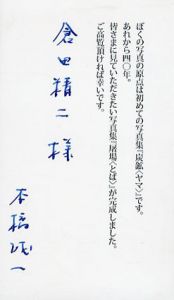 ぼくの写真の原点は初めての写真集『炭鉱〈ヤマ〉』です。
あれから四〇年。
皆さまに見ていただきたい写真集『屠場〈とば〉』が完成しました。
ご高覧頂ければ幸いです。
倉田精二様
本橋成一